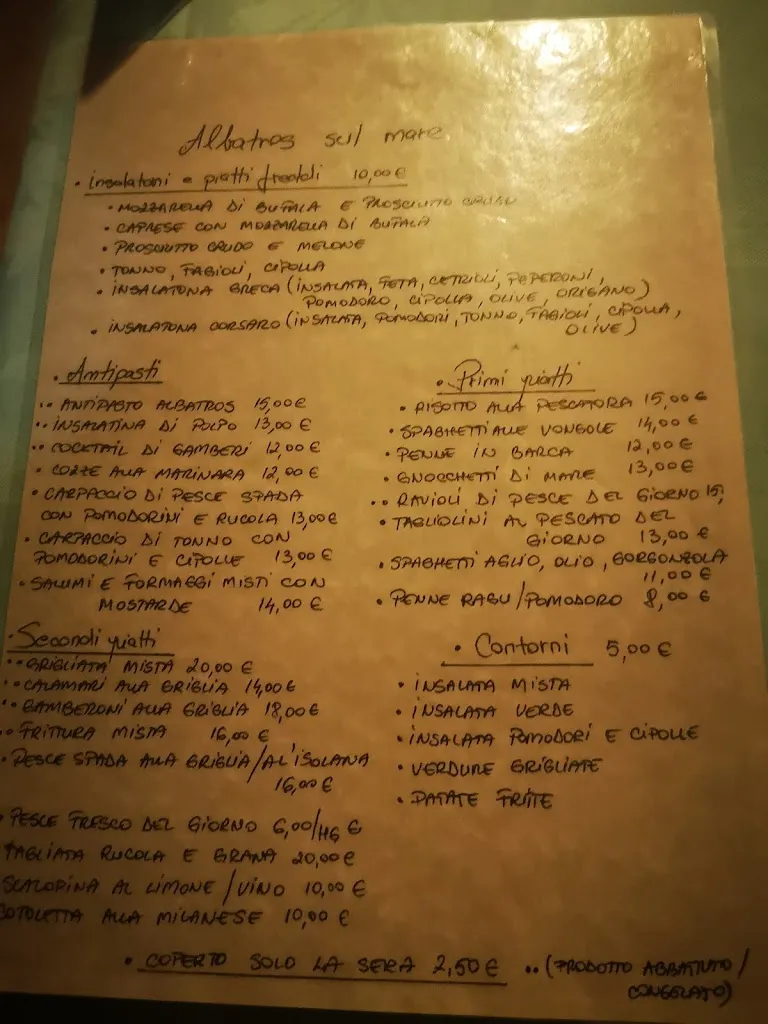 Albatros sul mare
• insalatoni e piatti freddi 10,00 €
• MOZZARELLA DI BUFALA E PROSCIUTTO CRUDO
• CAPRESE CON MOZZARELLA DI BUFALA
• PROSCIUTTO CRUDO E MELONE
• TONNO, FAGIOLI, CIPOLLA
• INSALATONA GRECA (INSALATA, FETA, CETRIOLI, PEPERONI,
POMODORO, CIPOLLA, OLIVE, ORIGANO)
• INSALATONA CORSARO (INSALATA, POMODORI, TONNO, FAGIOLI, CIPOLLA,
OLIVE)
• Antipasti
•• ANTIPASTO ALBATROS 15,00€
•• INSALATINA DI POLPO 13,00 €
•• COCKTAIL DI GAMBERI 12,00 €
• COZZE ALLA MARINARA 12,00 €
• CARPACCIO DI PESCE SPADA
CON POMODORINI E RUCOLA 13,00€
• CARPACCIO DI TONNO CON
POMODORINI E CIPOLLE 13,00 €
• SALUMI E FORMAGGI MISTI CON
MOSTARDE 14,00 €
• Primi piatti
• RISOTTO ALLA PESCATORA 15,00 €
• SPAGHETTI ALLE VONGOLE 14,00 €
• PENNE IN BARCA 12,00 €
• GNOCCHETTI DI MARE 13,00 €
•• RAVIOLI DI PESCE DEL GIORNO 15,
• TAGLIOLINI AL PESCATO DEL
GIORNO 13,00 €
• SPAGHETTI AGLIO, OLIO, GORGONZOLA
11,00 €
• PENNE RAGU/POMODORO 8,00 €
• Secondi piatti
•• GRIGLIATA MISTA 20,00 €
•• CALAMARI ALLA GRIGLIA 14,00 €
•• GAMBERONI ALLA GRIGLIA 18,00 €
•• FRITTURA MISTA 16,00 €
• PESCE SPADA ALLA GRIGLIA/AL'ISOLANA
16,00 €
• PESCE FRESCO DEL GIORNO 6,00/HG €
TAGLIATA RUCOLA E GRANA 20,00 €
SCALOPINA AL LIMONE/VINO 10,00 €
COTOLETTA ALLA MILANESE 10,00 €
• Contorni 5,00 €
• INSALATA MISTA
• INSALATA VERDE
• INSALATA POMODORI E CIPOLLE
• VERDURE GRIGLIATE
• PATATE FRITTE
• COPERTO SOLO LA SERA 2,50 € •• (PRODOTTO ABBATTUTO/
CONGELATO)